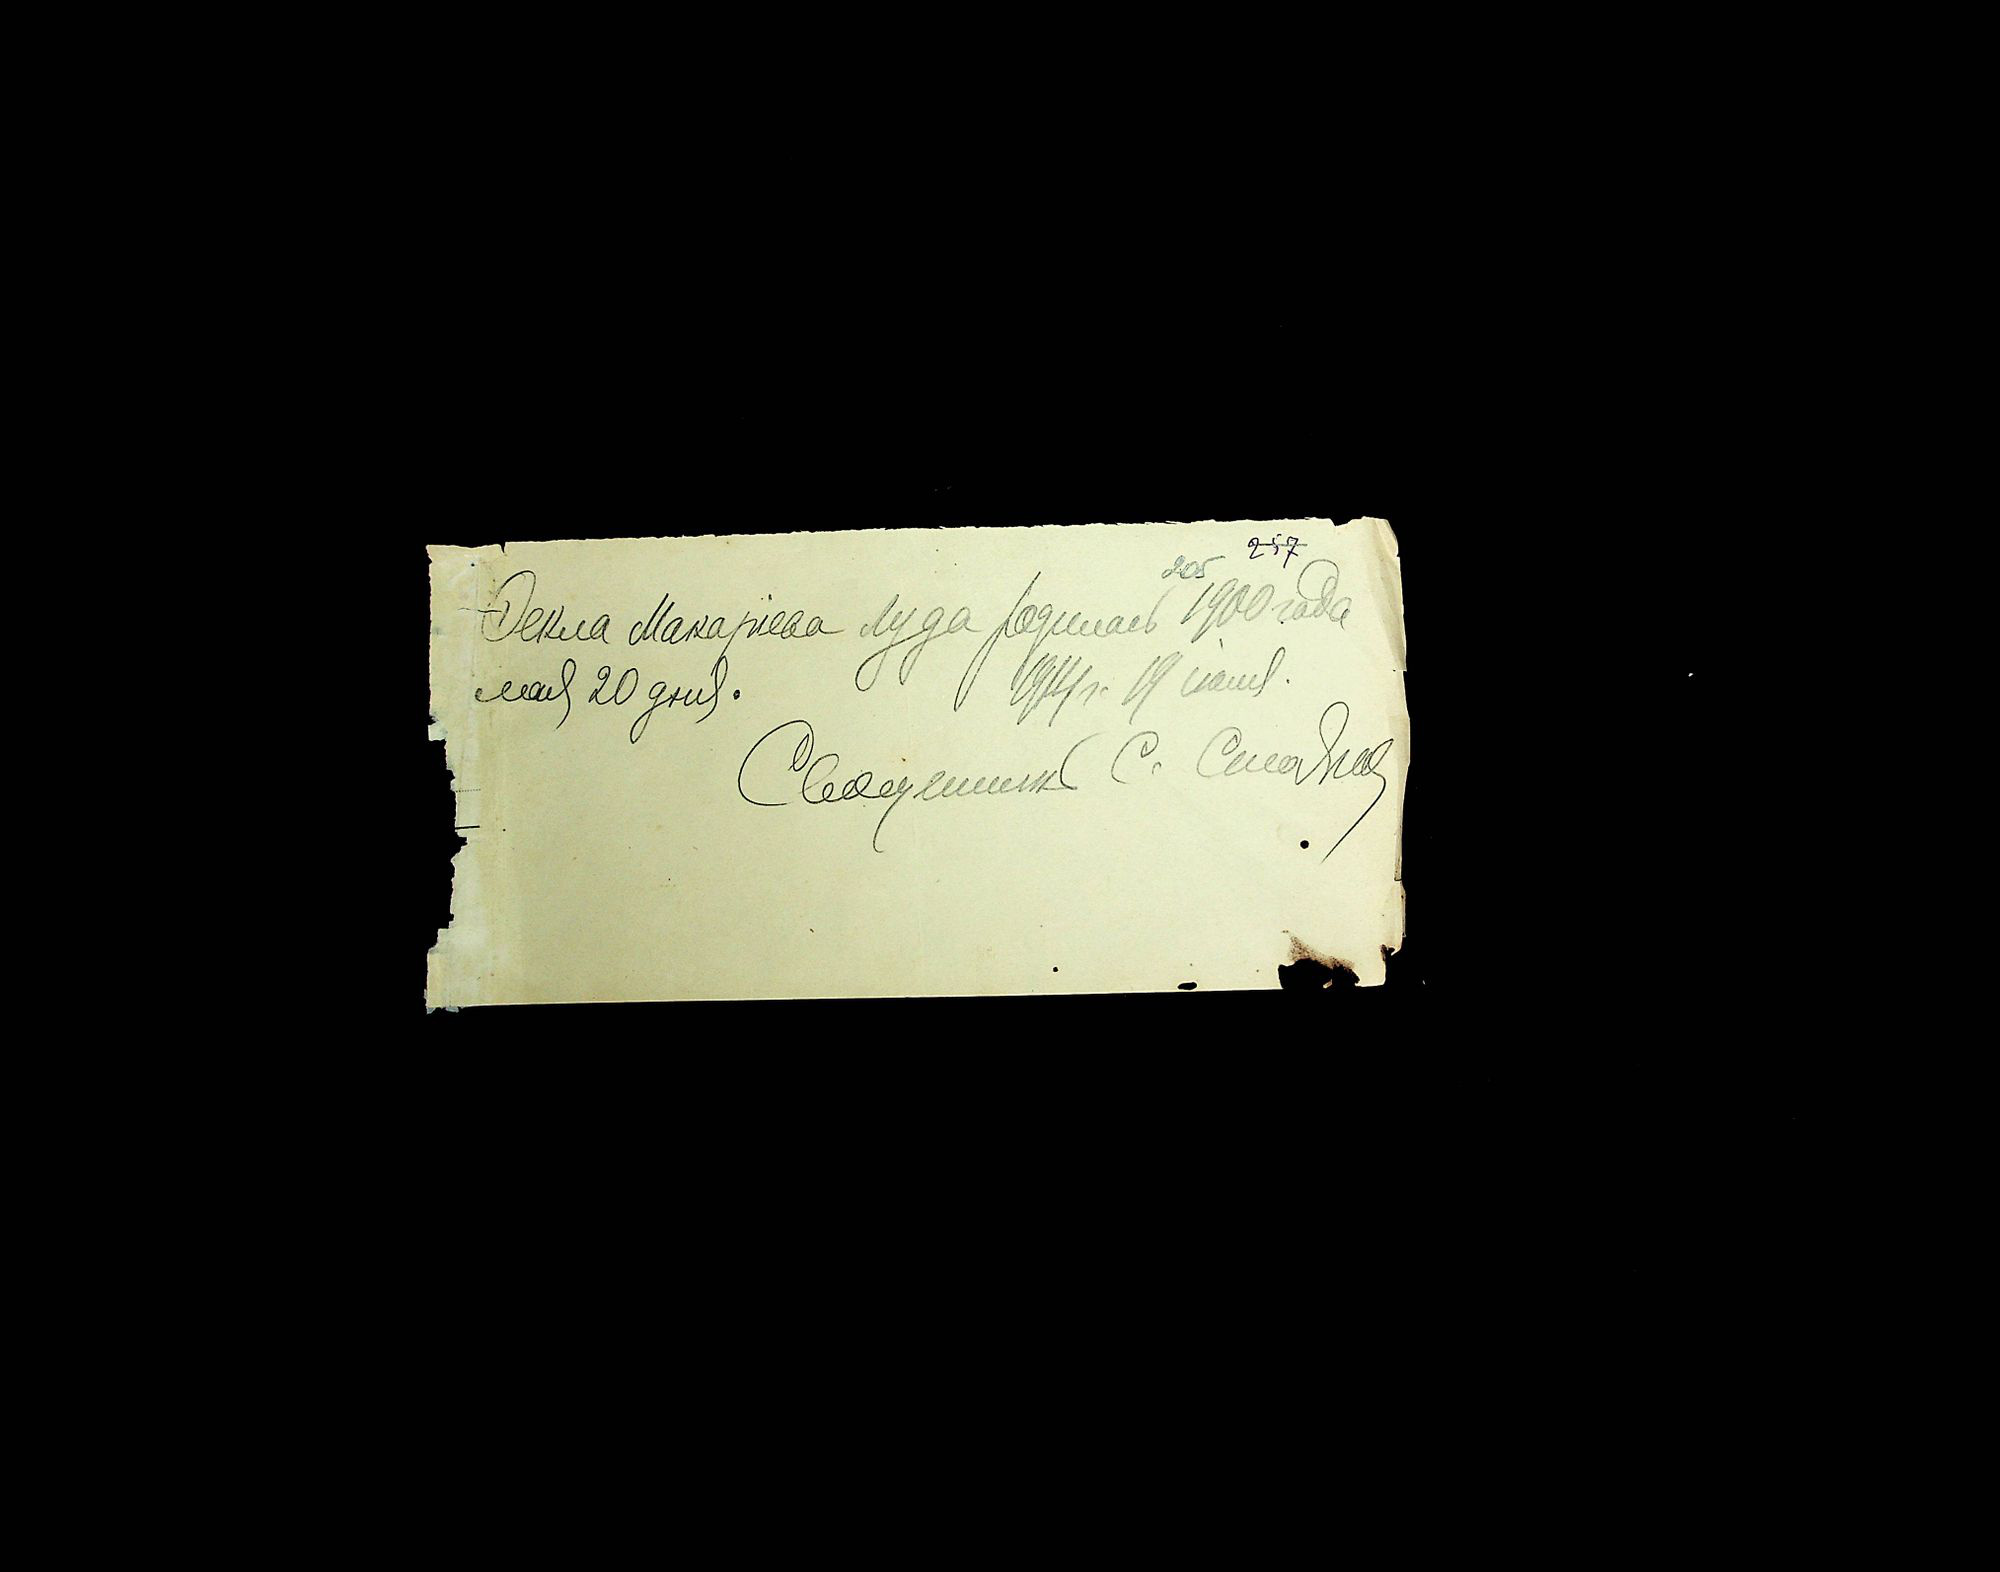 257
205
Ѳекла Макаріева Луда родилась 1900 года
мая 20 дня. 1914 г. 19 іюня.
Священникъ С.